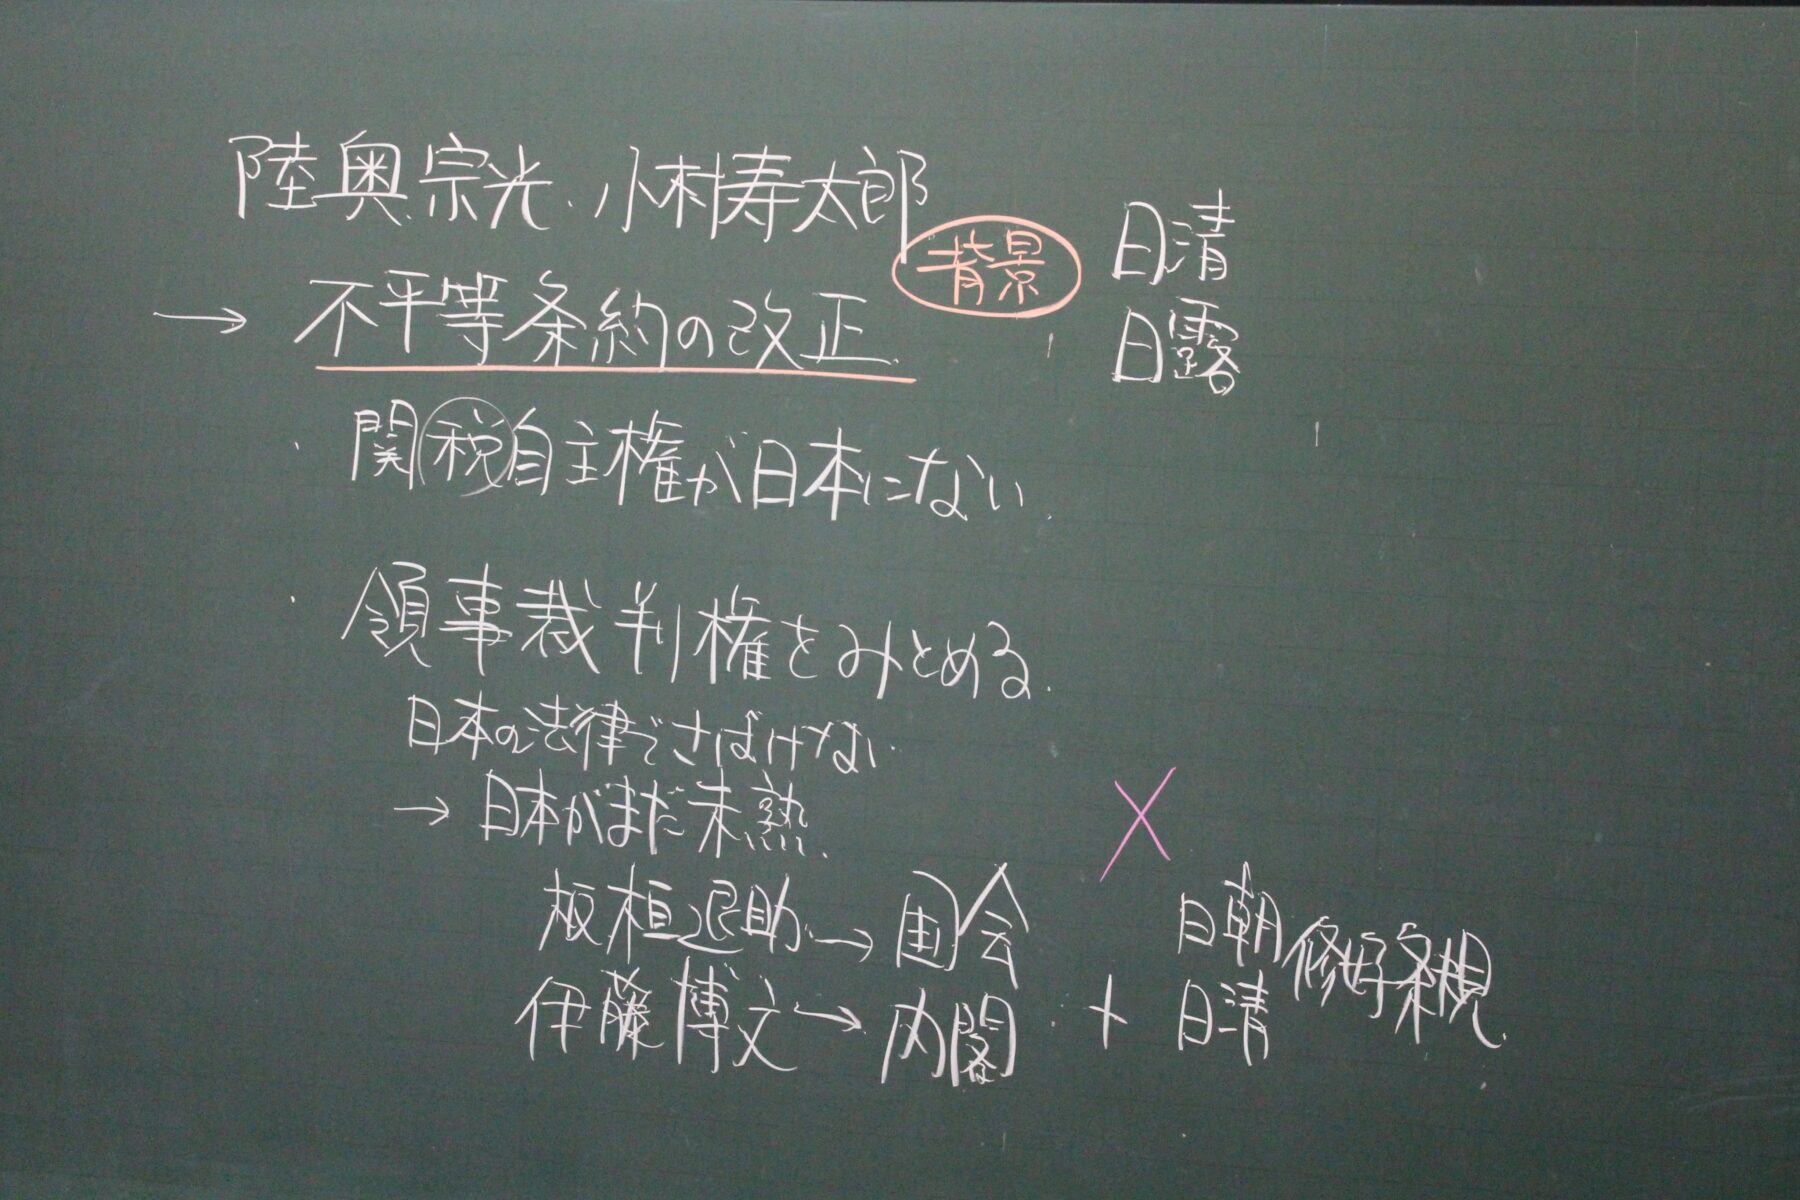 陸奥宗光・小村寿太郎
背景
日清
日露
→ 不平等条約の改正
・関税自主権が日本にない
・領事裁判権をみとめる
日本の法律でさばけない
→ 日本がまだ未熟
板垣退助→国会
伊藤博文→内閣
×
+
日朝
日清
修好条規